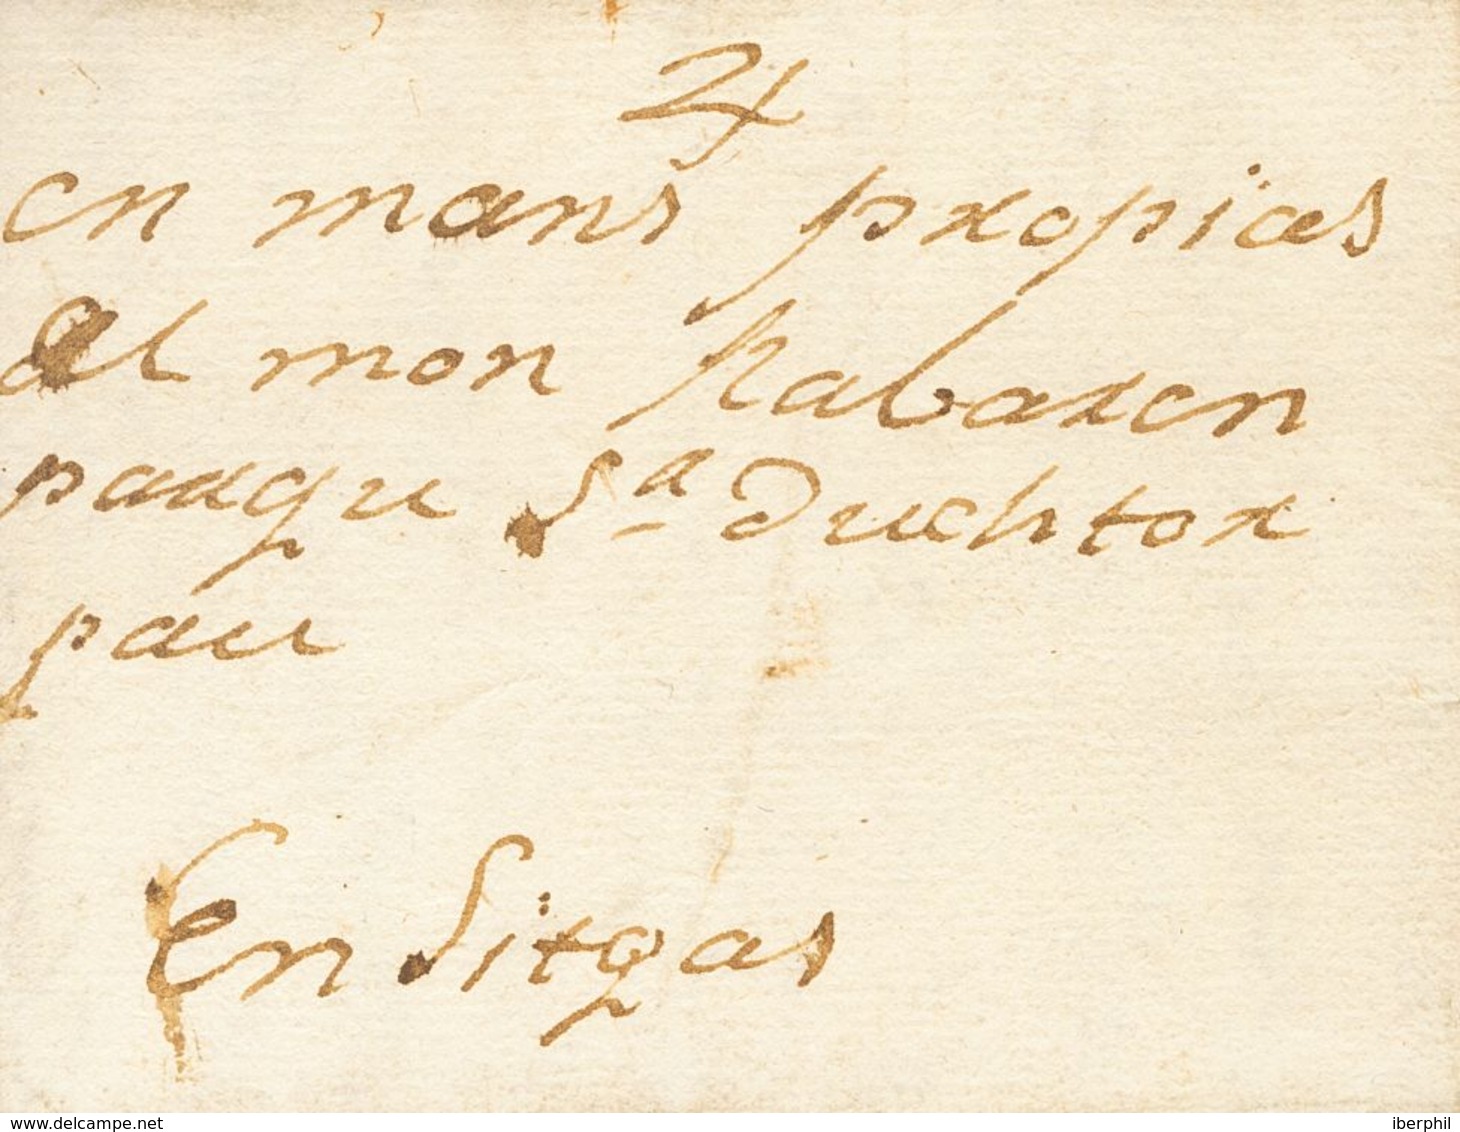 4
en mans propias
al mon Rabaren
parque Sª Duchtor
pau
En Sitgas
www.delcampe.net
iberphil